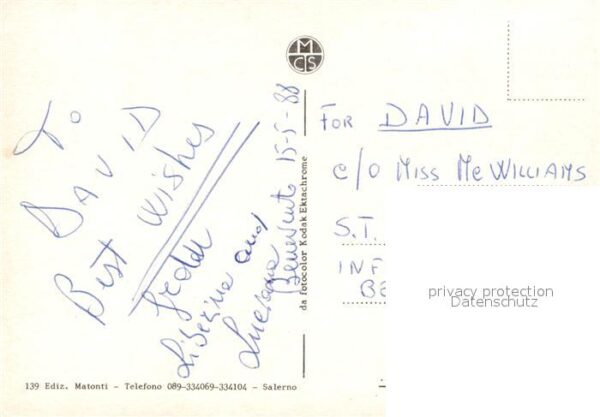 To
DAVID
Best Wishes
Liberina and
Luciana
Benevento 15-5-88
M
CS
da fotocolor Kodak Ektachrome
FOR DAVID
c/o Miss McWilliams
S.T.
INF
BE
privacy protection
Datenschutz
139 Ediz. Matonti - Telefono 089-334069-334104 - Salerno